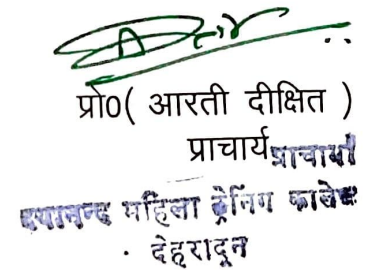 प्रो0( आरती दीक्षित )
प्राचार्य प्राचार्या
दयानन्द महिला ट्रेनिंग कालेज
देहरादून